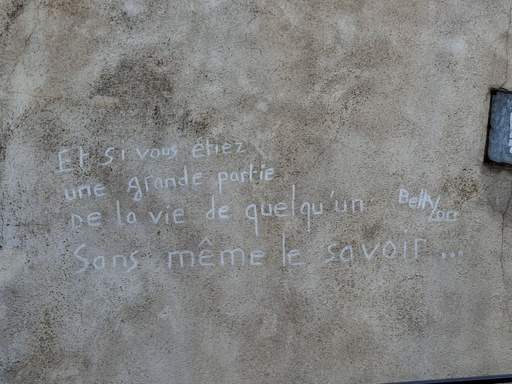 Et si vous étiez
une grande partie
De la vie de quelqu'un
Sans même le savoir ...
Betty